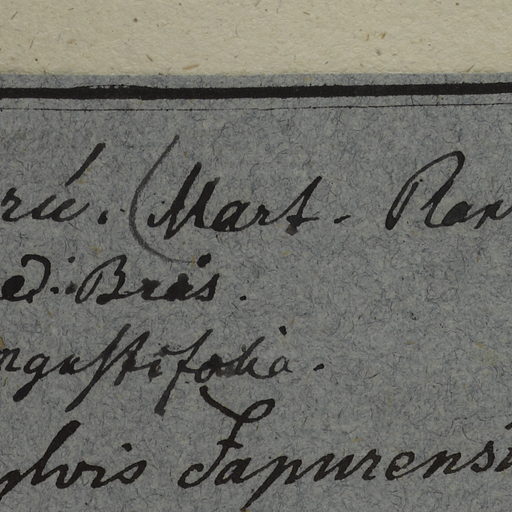 rú. (Mart. Plan
ed. Bras.
ngustifolia.
ylvis Japurensi